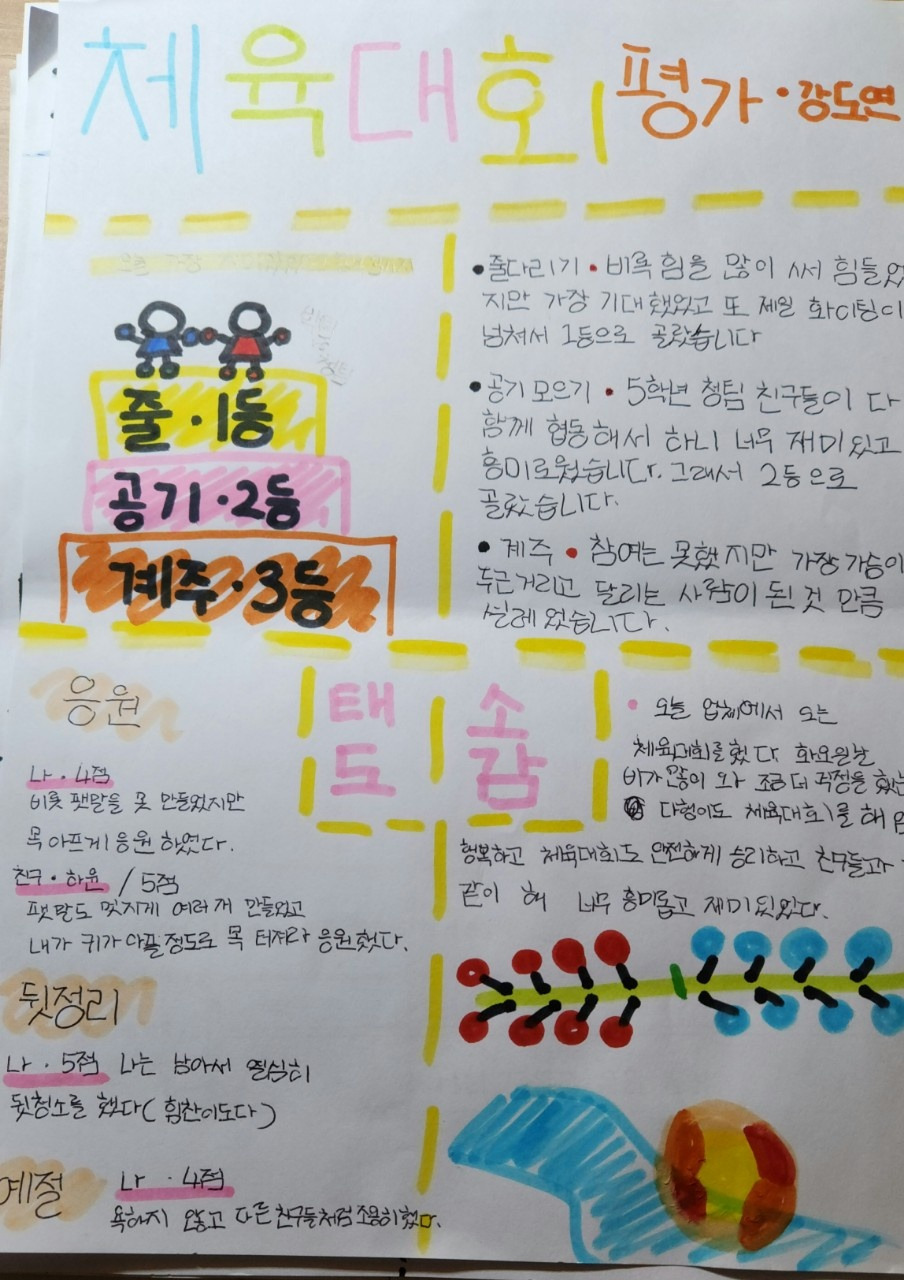 체육대회 평가·강도연
오늘 가장
줄·1등
공기·2등
계주·3등
•줄다리기 • 비록 힘을 많이 써 힘들었
지만 가장 기대했었고 또 제일 화이팅이
넘쳐서 1등으로 골랐습니다
•공기 모으기 • 5학년 청팀 친구들이 다
함께 협동해서 하니 너무 재미있고
흥미로웠습니다. 그래서 2등으로
골랐습니다.
• 계주 • 참여는 못했지만 가장 가슴이
두근거리고 달리는 사람이 된 것 만큼
설레었습니다.
응원
나·4점
비롯 팻말을 못 만들었지만
목 아프게 응원 하였다.
친구·하윤 / 5점
팻말도 멋지게 여러개 만들었고
내가 귀가 아플정도로 목 터져라 응원했다.
뒷정리
나·5점 나는 남아서 열심히
뒷청소를 했다(힘찬이도다)
예절
나·4점
욕하지 않고 다른 친구들처럼 조용히했다.
태도
소감
• 오늘 업체에서 오는
체육대회를 했다 화요일날
비가 많이 와 조금 더 걱정을 했는
다행이도 체육대회를 해
행복하고 체육대회도 안전하게 승리하고 친구들과
같이 해 너무 흥미롭고 재미있었다.